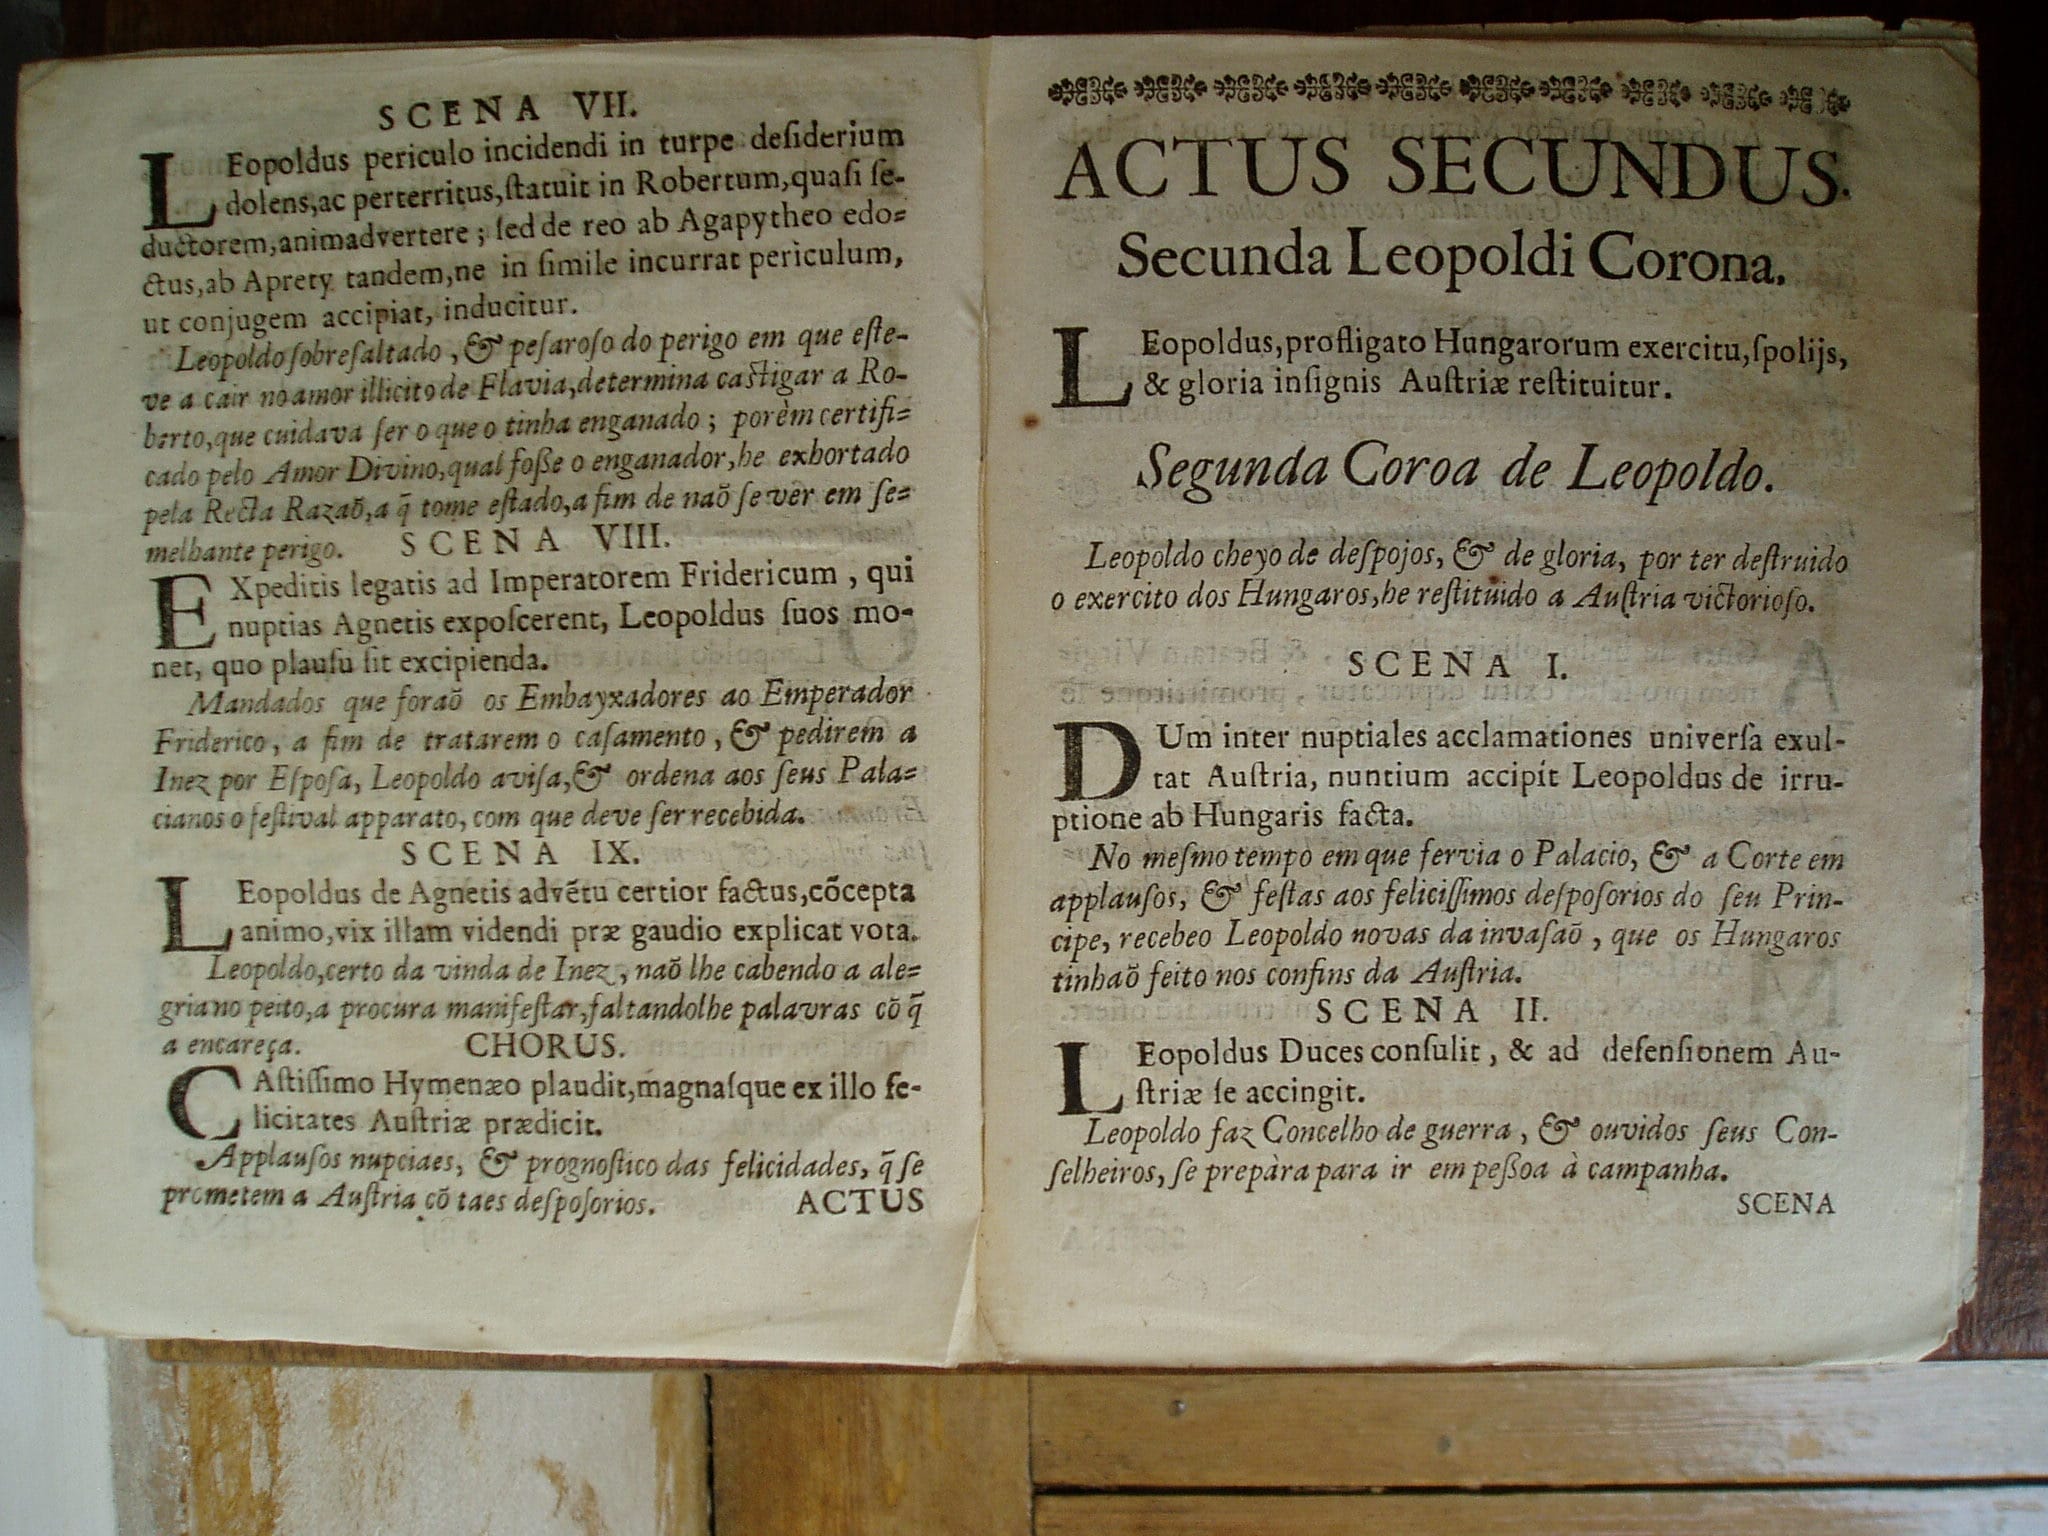 SCENA VII.
LEopoldus periculo incidendi in turpe deſiderium
dolens,ac perterritus,ſtatuit in Robertum,quaſi ſe-
ductorem,animadvertere ; ſed de reo ab Agapytheo edo-
ctus,ab Aprety tandem,ne in ſimile incurrat periculum,
ut conjugem accipiat, inducitur.
Leopoldo ſobreſaltado , & peſaroſo do perigo em que eſte-
ve a cair no amor illicito de Flavia,determina caſtigar a Ro-
berto,que cuidava ſer o que o tinha enganado ; porèm certifi-
cado pelo Amor Divino,qual foſſe o enganador,he exhortado
pela Recta Razaõ,a q̃ tome eſtado,a fim de naõ ſe ver em ſe-
melhante perigo. SCENA VIII.
EXpeditis legatis ad Imperatorem Fridericum , qui
nuptias Agnetis expoſcerent, Leopoldus ſuos mo-
net, quo plauſu ſit excipienda.
Mandados que foraõ os Embayxadores ao Emperador
Friderico, a fim de tratarem o caſamento , & pedirem a
Inez por Eſpoſa, Leopoldo aviſa,& ordena aos ſeus Pala-
cianos o feſtival apparato, com que deve ſer recebida.
SCENA IX.
LEopoldus de Agnetis advẽtu certior factus,cõcepta
animo,vix illam videndi præ gaudio explicat vota.
Leopoldo,certo da vinda de Inez , naõ lhe cabendo a ale-
gria no peito,a procura manifeſtar,faltandolhe palavras cõ q̃
a encareça. CHORUS.
CAſtiſſimo Hymenæo plaudit,magnaſque ex illo fe-
licitates Auſtriæ prædicit.
Applauſos nupciaes, & prognoſtico das felicidades, q̃ ſe
prometem a Auſtria cõ taes deſpoſorios. ACTUS
ACTUS SECUNDUS.
Secunda Leopoldi Corona.
LEopoldus,profligato Hungarorum exercitu,ſpolijs,
& gloria inſignis Auſtriæ reſtituitur.
Segunda Coroa de Leopoldo.
Leopoldo cheyo de deſpojos, & de gloria, por ter deſtruido
o exercito dos Hungaros,he reſtituido a Auſtria victorioſo.
SCENA I.
DUm inter nuptiales acclamationes univerſa exul-
tat Auſtria, nuntium accipit Leopoldus de irru-
ptione ab Hungaris facta.
No meſmo tempo em que fervia o Palacio, & a Corte em
applauſos, & feſtas aos feliciſſimos deſpoſorios do ſeu Prin-
cipe, recebeo Leopoldo novas da invaſaõ , que os Hungaros
tinhaõ feito nos confins da Auſtria.
SCENA II.
LEopoldus Duces conſulit , & ad defenſionem Au-
ſtriæ ſe accingit.
Leopoldo faz Concelho de guerra , & ouvidos ſeus Con-
ſelheiros, ſe prepàra para ir em peſſoa à campanha.
SCENA